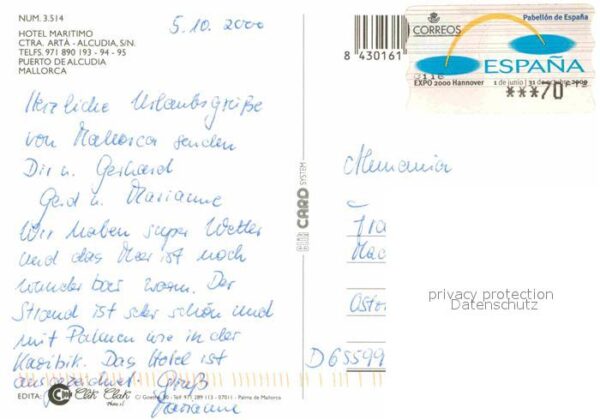 NUM. 3.514
HOTEL MARITIMO
CTRA. ARTÀ - ALCUDIA, S/N.
TELFS. 971 890 193 - 94 - 95
PUERTO DE ALCUDIA
MALLORCA
5.10. 2000
Herzliche Urlaubsgrüße
von Mallorca senden
Dir u. Gerhard
Gerd u. Marianne
Wir haben super Wetter
und das Meer ist noch
wunderbar warm. Der
Strand ist sehr schön und
mit Palmen wie in der
Karibik. Das Hotel ist
ausgezeichnet Gruß
Marianne
EDITA:
Palma de Mallorca
CARD SYSTEM
8 430161
CORREOS
Pabellón de España
ESPAÑA
EXPO 2000 Hannover
1 de junio / 31 de octubre 2000
***70
Alemania
Fra
Oster
D 65599
privacy protection
Datenschutz